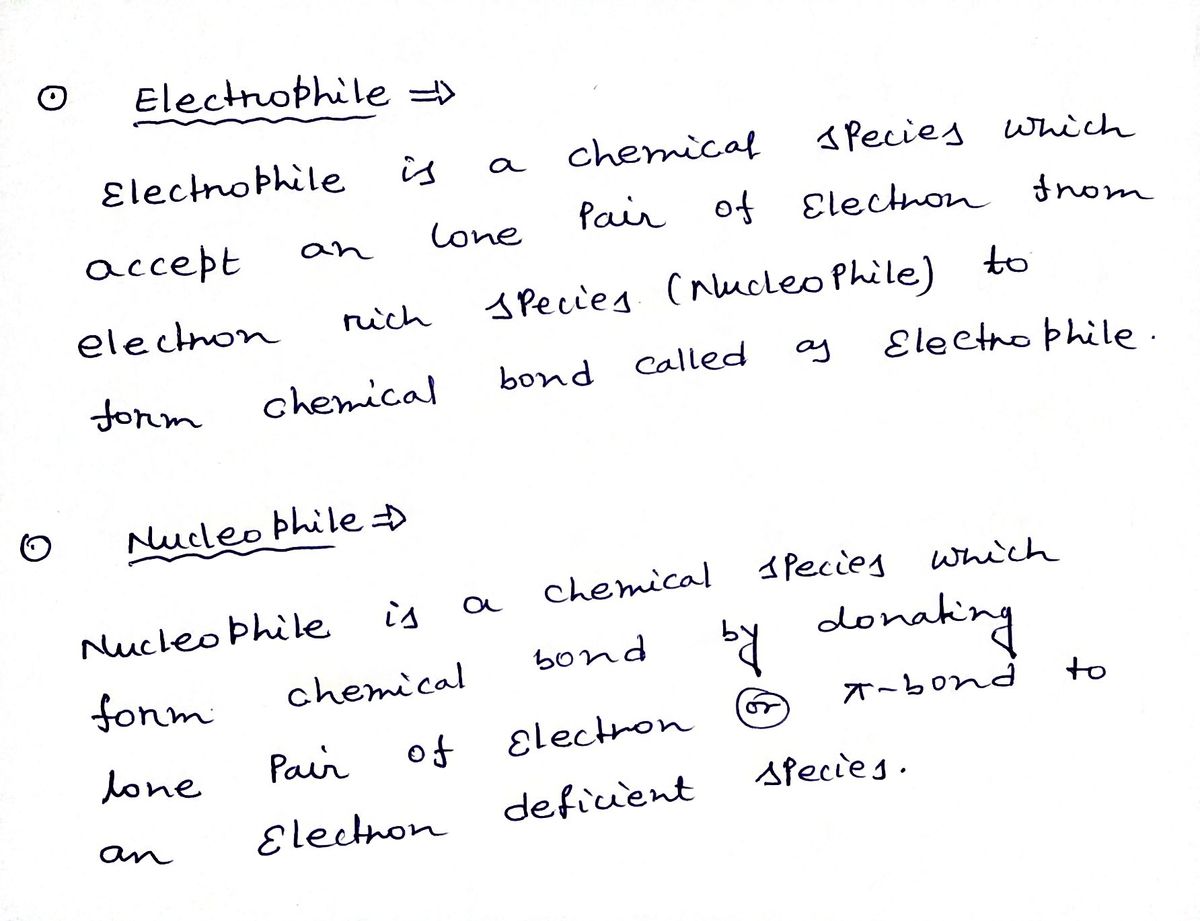 ⊙ Electrophile ⇒
Electrophile is a chemical species which
accept an lone pair of Electron from
electron rich species (Nucleophile) to
form chemical bond called as Electrophile.
⊙ Nucleophile ⇒
Nucleophile is a chemical species which
form chemical bond by donating
lone pair of Electron or π-bond to
an Electron deficient species.